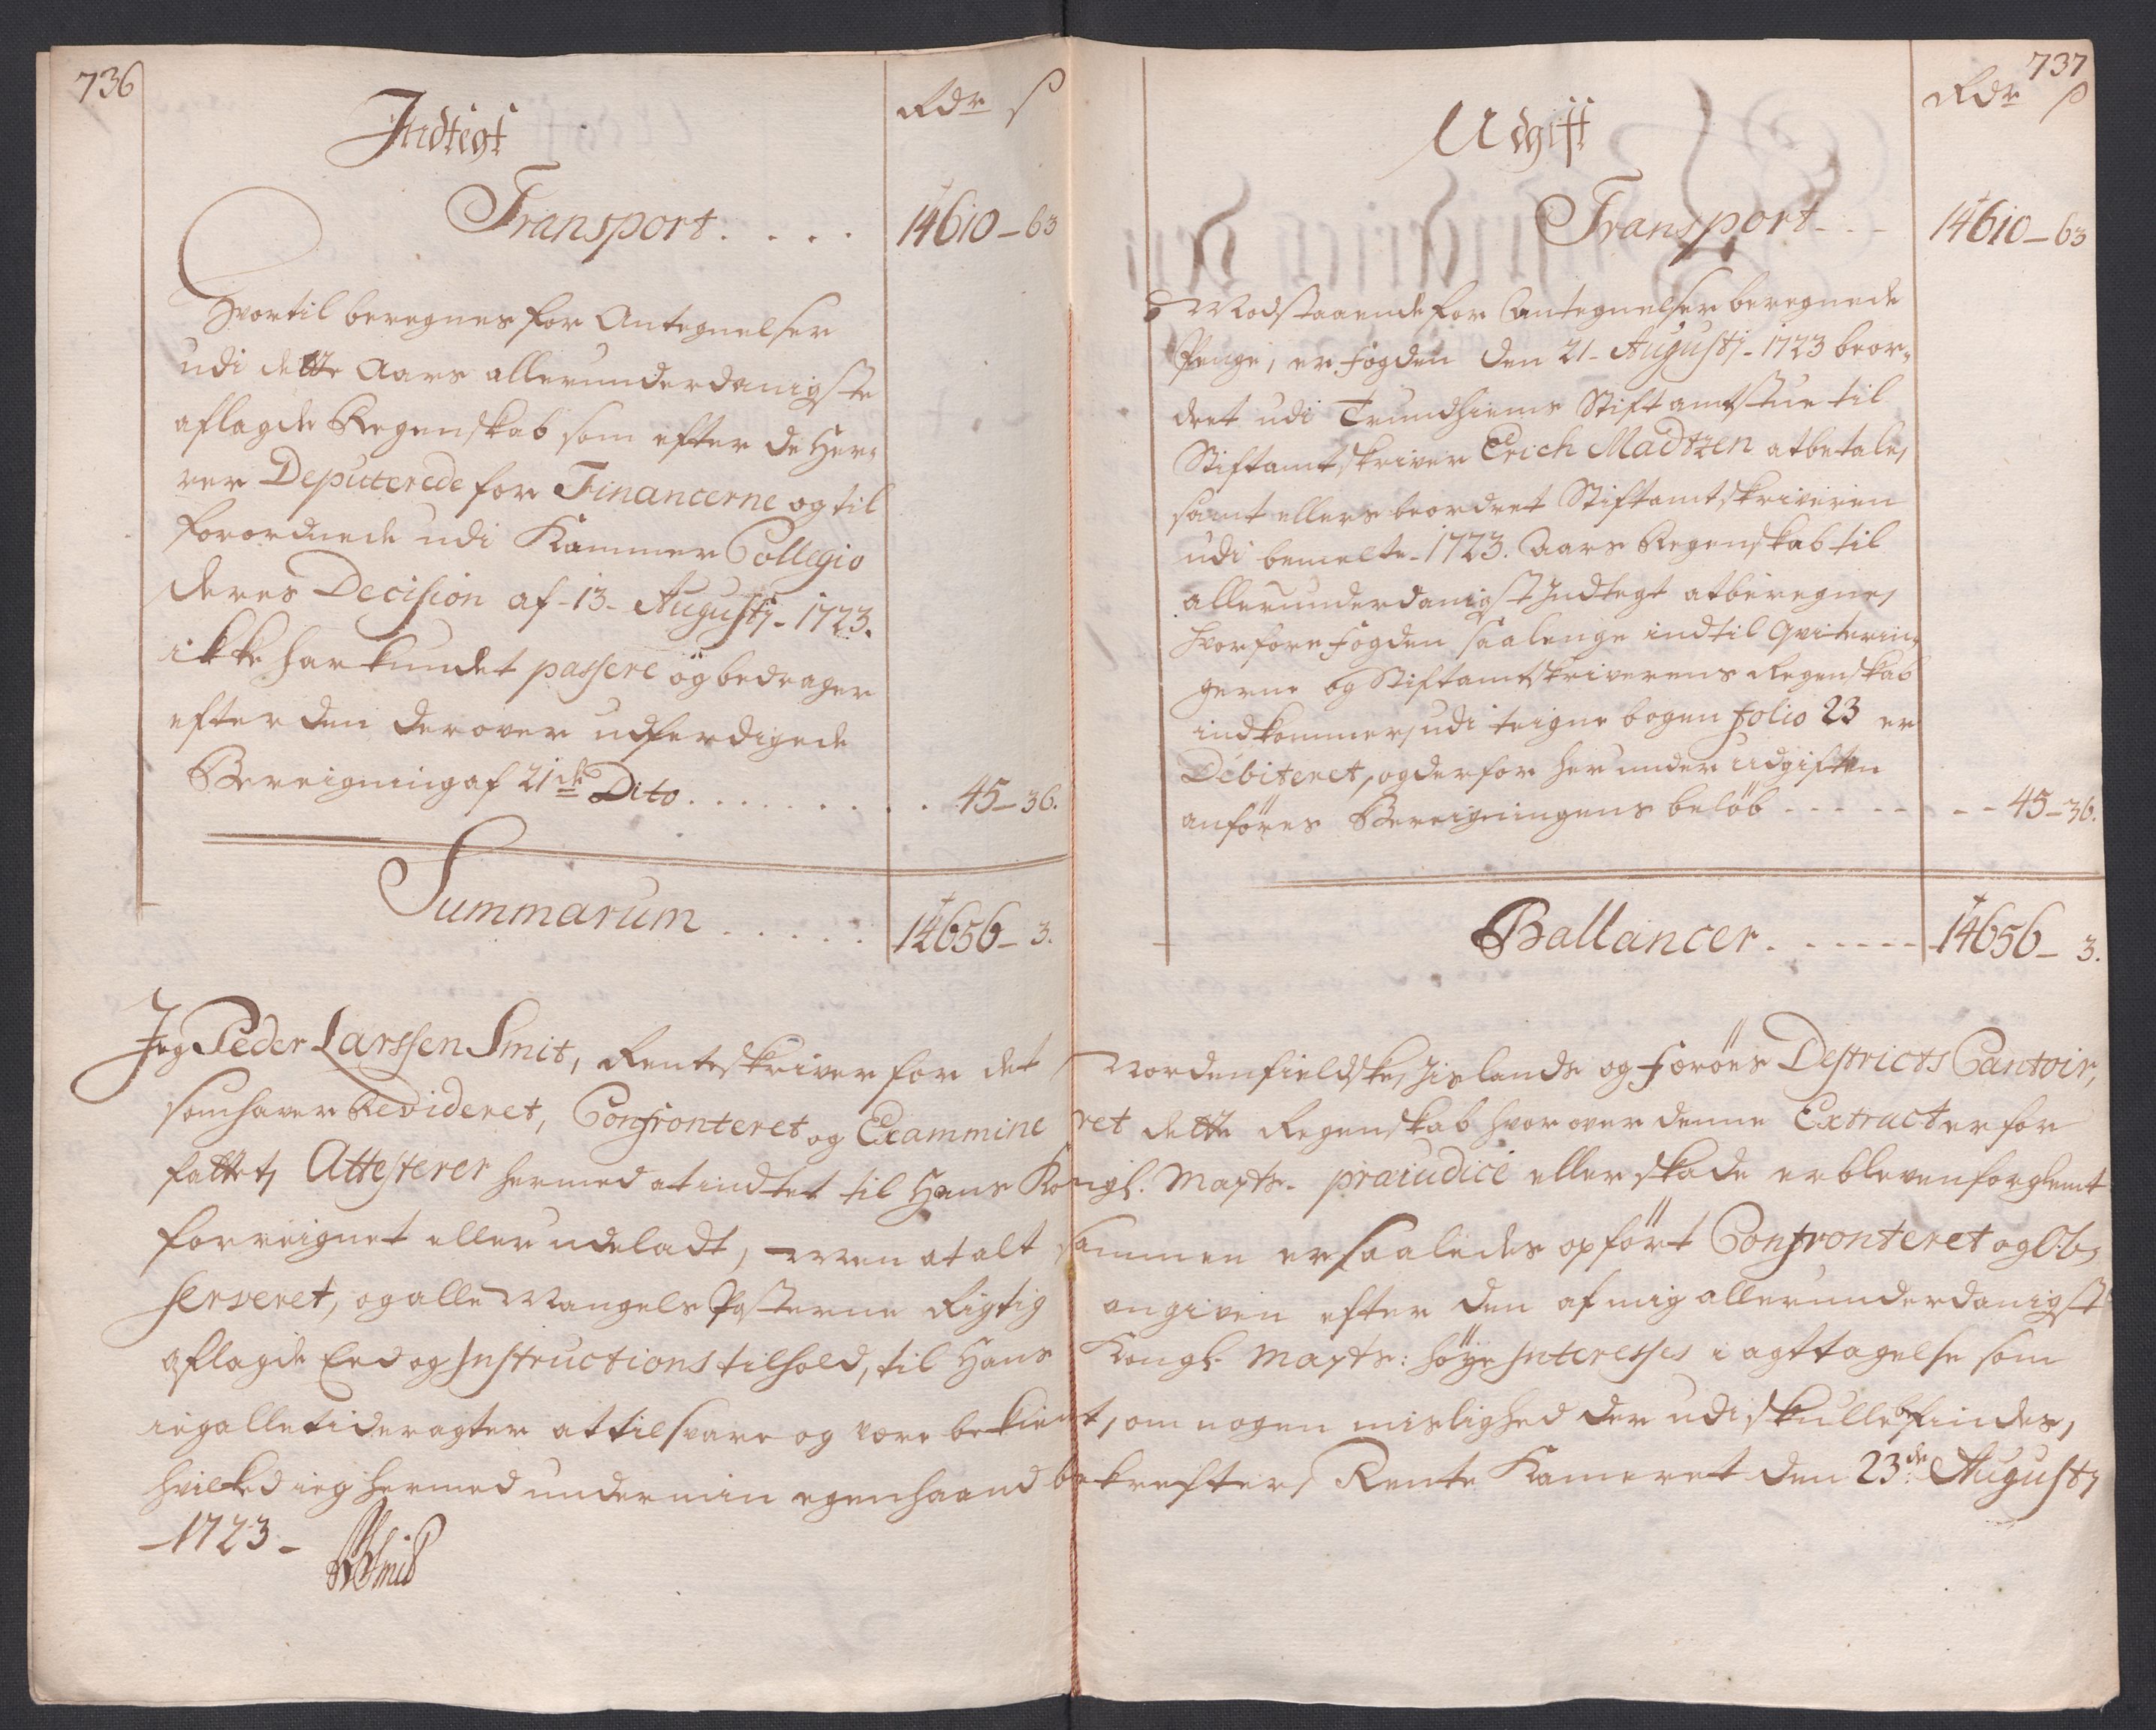 736
Indtegt
Rdr ß
Transport . . . . 14610 - 63
Hvortil beregnes for Antegnelser
udi dette Aars allerunderdanigste
aflagde Regenskab som efter de Her,,
rer Deputerede for Financerne og til
forordnede udi Kammer Collegio
deres Decision af - 13 - Augustj - 1723.
ikke har kundet passere og bedrager
efter den derover udferdigede
Bereigning af 21de Dito . . . . . . . . . 45 - 36.
Summarum . . . . . 14656 - 3.
737
Udgift
Rdr ß
Transport - - - 14610 - 63
Modstaaende for Antegnelser beregnede
Penge, er Fogden den 21 - Augustj - 1723 beor,,
dret udi Trundhiems Stiftamtstue til
Stiftamtskriver Erich Madtzen at betale,
samt ellers beordret Stiftamtskriveren
udi bemelte - 1723. Aars Regenskab til
allerunderdanigst Indtegt at beregne,
hvorfore Fogden saalenge indtil Qviterin,,
gerne og Stiftamtskriverens Regenskab
indkommer, udi teigne bogen folio 23 er
Debiteret, og derfor her under udgiften
anföres Bereigningens belöb - - - - - - - 45 - 36.
Ballancer . - - - - - 14656 - 3.
Jeg Peder Larssen Smit, Renteskriver for det Nordenfieldske, Jislands og Feröes Destricts Cantoir,
som haver Revideret, Confronteret og Exammineret dette Regenskab hvor over denne Extract er for
fattet, Attesterer hermed at indtet til Hans Kongl. Mayts. præiudice eller skade er bleven forglemt
forreignet eller udeladt, men at alt sammen er saaledes opfört Confronteret og Ob,,
serveret, og alle Mangels Posterne Rigtig angiven efter den af mig allerunderdanigst
aflagde Eed og Instructions tilhold, til Hans Kongl. Mayts: höye Interesses i agttagelse som
ieg alle tider agter at tilsvare og være bekient, om nogen mislighed der udi skulle befindes,
hvilked ieg hermed under min egen haand bekrefter, Rente Kameret den 23de Augustj
- 1723 -
PLSmit